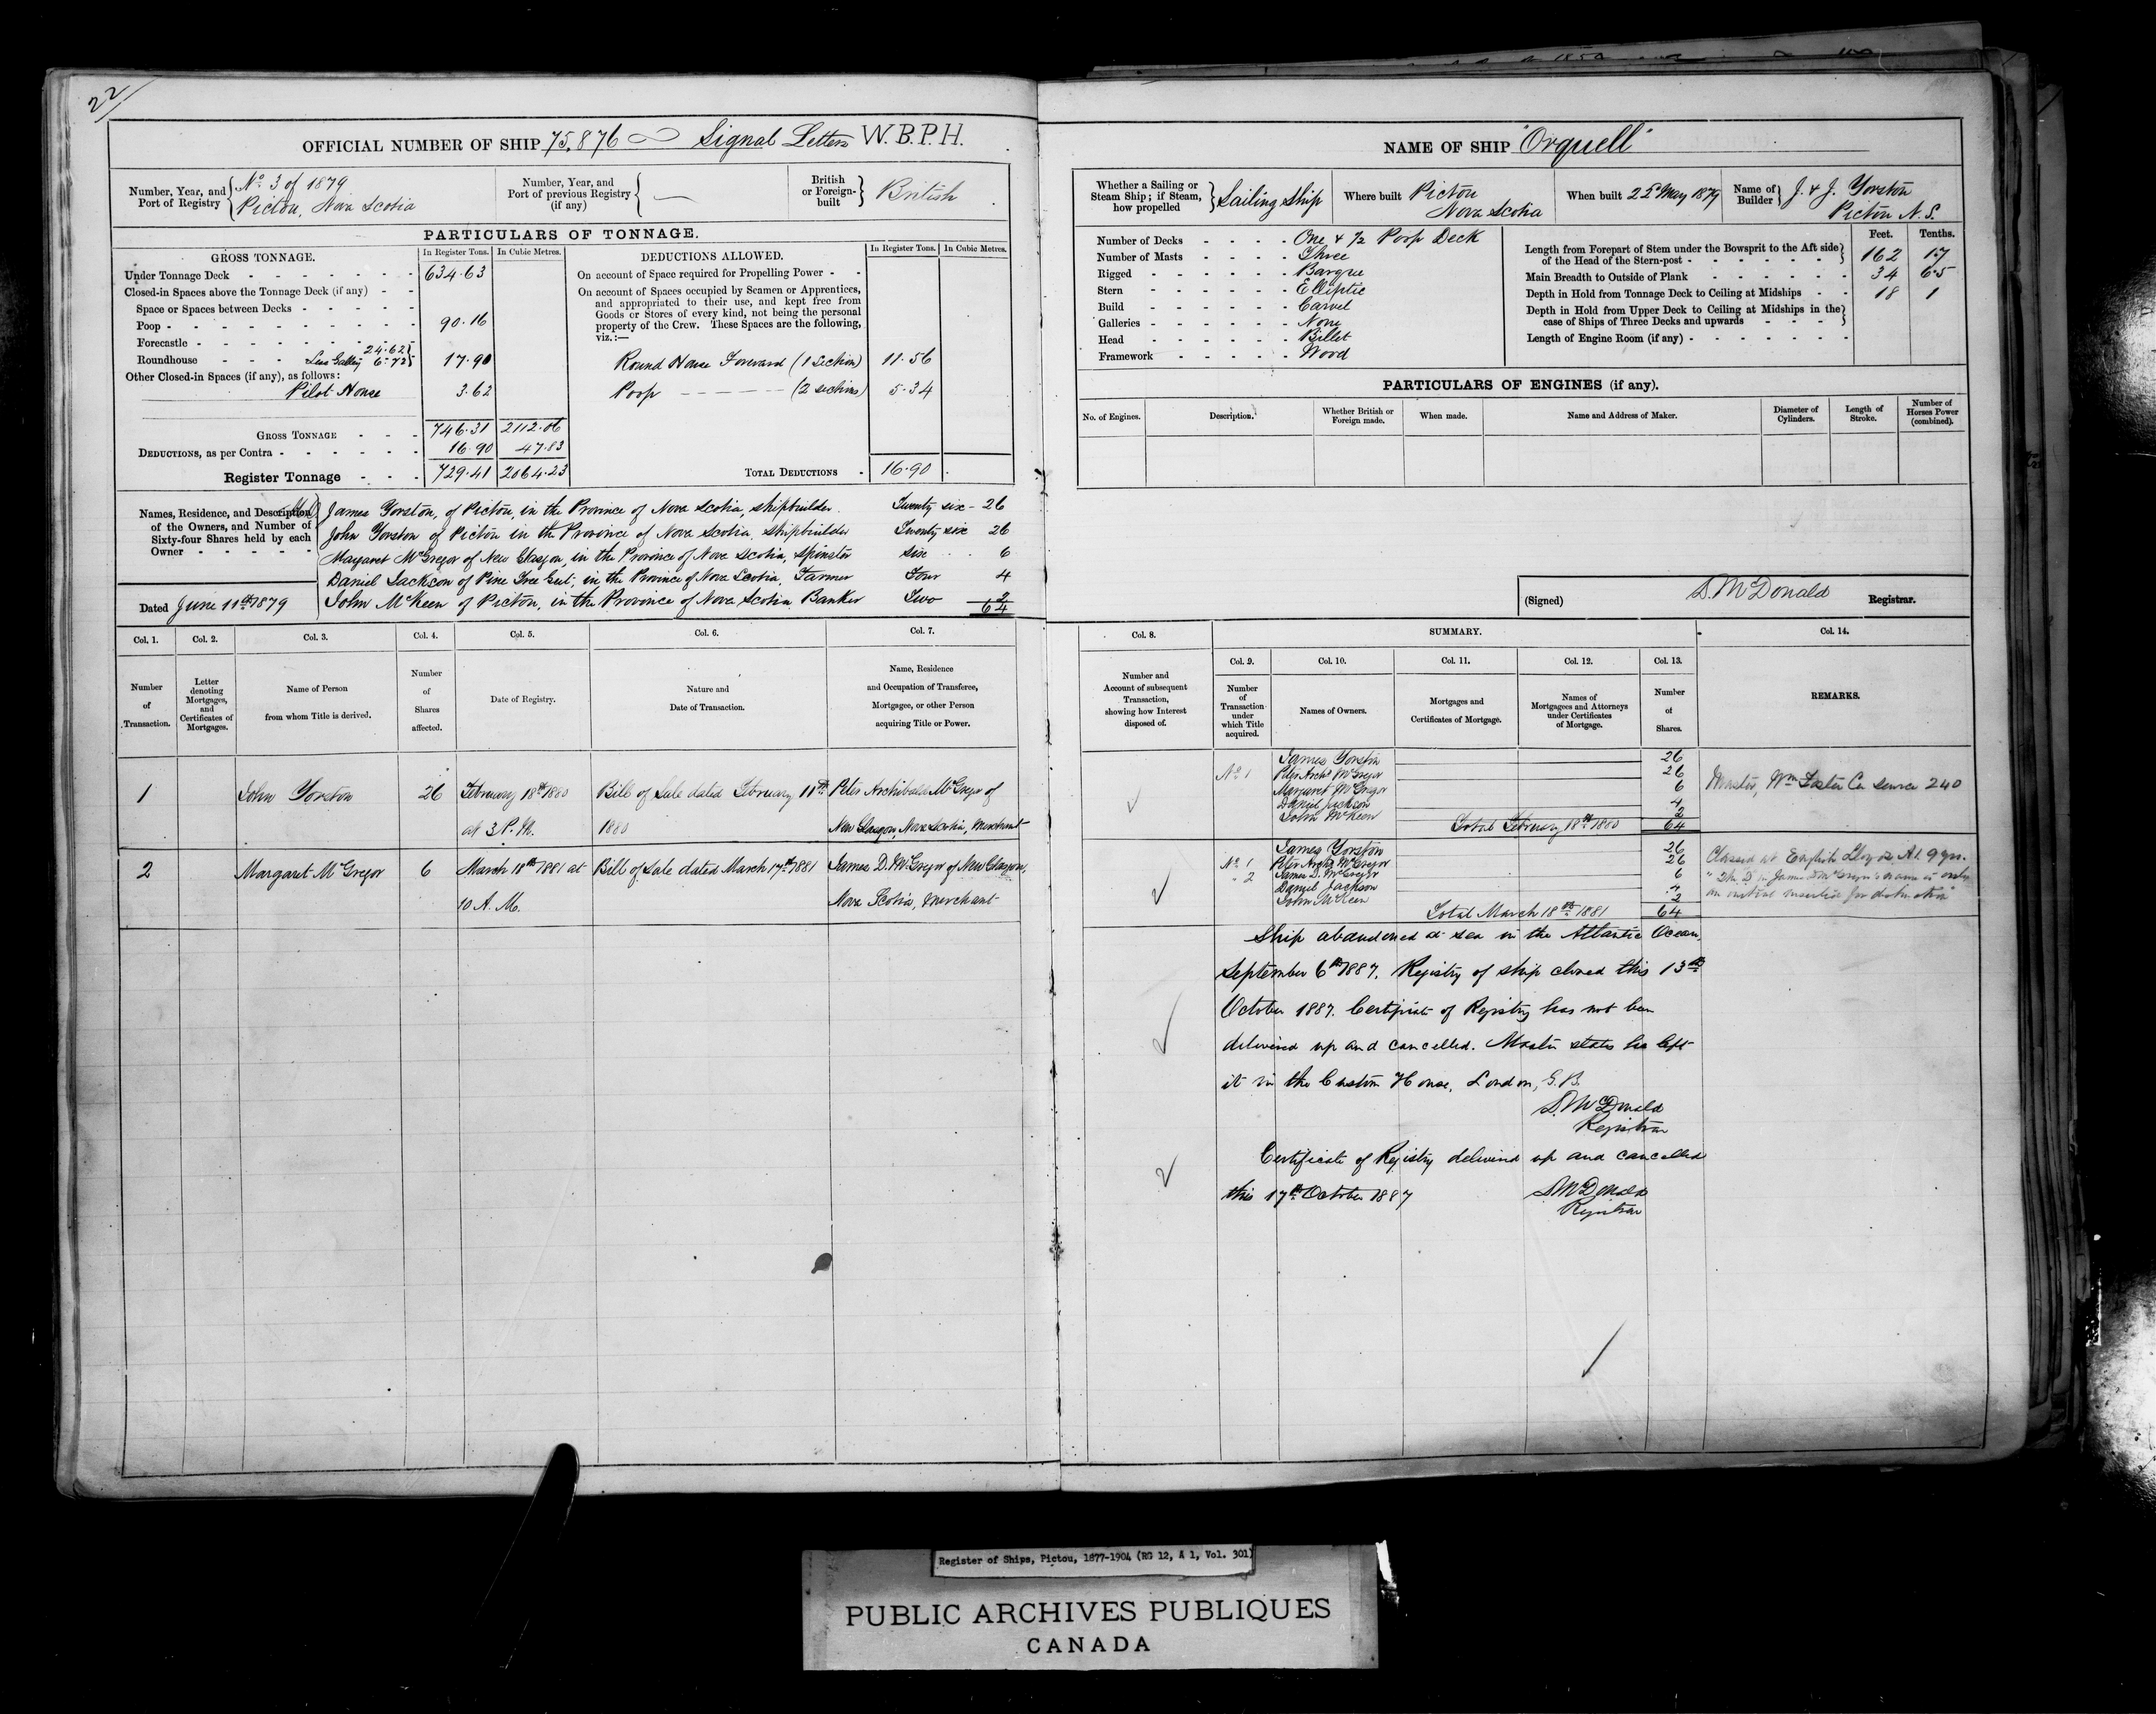 22/
OFFICIAL NUMBER OF SHIP 75,876 Signal Letters W.B.P.H.
Number, Year, and Port of Registry { No. 3 of 1879
Pictou, Nova Scotia
Number, Year, and Port of previous Registry (if any) { —
British or Foreign-built } British
PARTICULARS OF TONNAGE.
GROSS TONNAGE. In Register Tons. In Cubic Metres.
Under Tonnage Deck - 634.63
Closed-in Spaces above the Tonnage Deck (if any) - -
Space or Spaces between Decks - - - - -
Poop - 90.16
Forecastle -
24.62
Roundhouse - - - Less Galley 6.72 } 17.90
Other Closed-in Spaces (if any), as follows:
Pilot House 3.62
GROSS TONNAGE - - - 746.31 2112.06
DEDUCTIONS, as per Contra - 16.90 47.83
Register Tonnage - - - 729.41 2064.23
DEDUCTIONS ALLOWED. In Register Tons. In Cubic Metres.
On account of Space required for Propelling Power - -
On account of Spaces occupied by Seamen or Apprentices,
and appropriated to their use, and kept free from
Goods or Stores of every kind, not being the personal
property of the Crew. These Spaces are the following,
viz.:—
Round House Forward (1 section) 11.56
Poop - - - - - (2 sections) 5.34
TOTAL DEDUCTIONS - 16.90
Names, Residence, and Description
of the Owners, and Number of
Sixty-four Shares held by each
Owner - - - - -
James Yorston, of Pictou, in the Province of Nova Scotia, shipbuilder. Twenty six - 26
John Yorston of Pictou in the Province of Nova Scotia, shipbuilder Twenty six 26
Margaret McGregor of New Glasgow, in the Province of Nova Scotia, Spinster six - - 6
Daniel Jackson of Pine Tree Gut, in the Province of Nova Scotia, Farmer Four 4
John McKeen of Pictou, in the Province of Nova Scotia Banker Two 2
64
Dated June 11th 1879
Col. 1. Col. 2. Col. 3. Col. 4. Col. 5. Col. 6. Col. 7.
Number of Transaction.
Letter denoting Mortgages, and Certificates of Mortgages.
Name of Person from whom Title is derived.
Number of Shares affected.
Date of Registry.
Nature and Date of Transaction.
Name, Residence and Occupation of Transferee, Mortgagee, or other Person acquiring Title or Power.
1 John Yorston 26 February 18th 1880 Bill of Sale dated February 11th Peter Archibald McGregor of
at 3 P.M. 1880 New Glasgow, Nova Scotia, Merchant
2 Margaret McGregor 6 March 18th 1881 at Bill of Sale dated March 17th 1881 James D. McGregor of New Glasgow,
10 A.M. Nova Scotia, Merchant
NAME OF SHIP "Orquell"
Whether a Sailing or Steam Ship; if Steam, how propelled } Sailing Ship
Where built Pictou
Nova Scotia
When built 22 May 1879
Name of Builder } J. & J. Yorston
Pictou N.S.
Number of Decks - - - - One & 1/2 Poop Deck
Number of Masts - - - - Three
Rigged - - - - - - Barque
Stern - - - - - - Elliptic
Build - - - - - - Carvel
Galleries - - - - - - None
Head - - - - - - Billet
Framework - - - - - Wood
Feet. Tenths.
Length from Forepart of Stem under the Bowsprit to the Aft side
of the Head of the Stern-post - 162 1.7
Main Breadth to Outside of Plank - 34 6.5
Depth in Hold from Tonnage Deck to Ceiling at Midships - - 18 1
Depth in Hold from Upper Deck to Ceiling at Midships in the
case of Ships of Three Decks and upwards - - -
Length of Engine Room (if any) -
PARTICULARS OF ENGINES (if any).
No. of Engines. Description. Whether British or Foreign made. When made. Name and Address of Maker. Diameter of Cylinders. Length of Stroke. Number of Horses Power (combined).
(Signed) D. McDonald Registrar.
Col. 8. SUMMARY. Col. 14.
Col. 9. Col. 10. Col. 11. Col. 12. Col. 13.
Number and Account of subsequent Transaction, showing how Interest disposed of.
Number of Transaction under which Title acquired.
Names of Owners.
Mortgages and Certificates of Mortgage.
Names of Mortgagees and Attorneys under Certificates of Mortgage.
Number of Shares.
REMARKS.
James Yorston 26
No. 1 Peter Archd McGregor 26
Margaret McGregor 6
Daniel Jackson 4
John McKeen 2
Total February 18th 1880 64
Master, Wm
240
James Yorston 26
No. 1 Peter Archd McGregor 26
" 2 James D. McGregor 6
Daniel Jackson 4
John McKeen 2
Total March 18th 1881 64
Classed at English Lloyds A1 9 yrs.
"The D in James D McGregor's name is only
an initial inserted for distinction"
Ship abandoned at sea in the Atlantic Ocean,
September 6th 1887. Registry of ship closed this 13th
October 1887. Certificate of Registry has not been
delivered up and cancelled. Master states he left
it in the Custom House, London, G.B.
D. McDonald
Registrar
Certificate of Registry delivered up and cancelled
this 17th October 1887
D. McDonald
Registrar
Register of Ships, Pictou, 1877-1904 (RG 12, A 1, Vol. 301)
PUBLIC ARCHIVES PUBLIQUES
CANADA